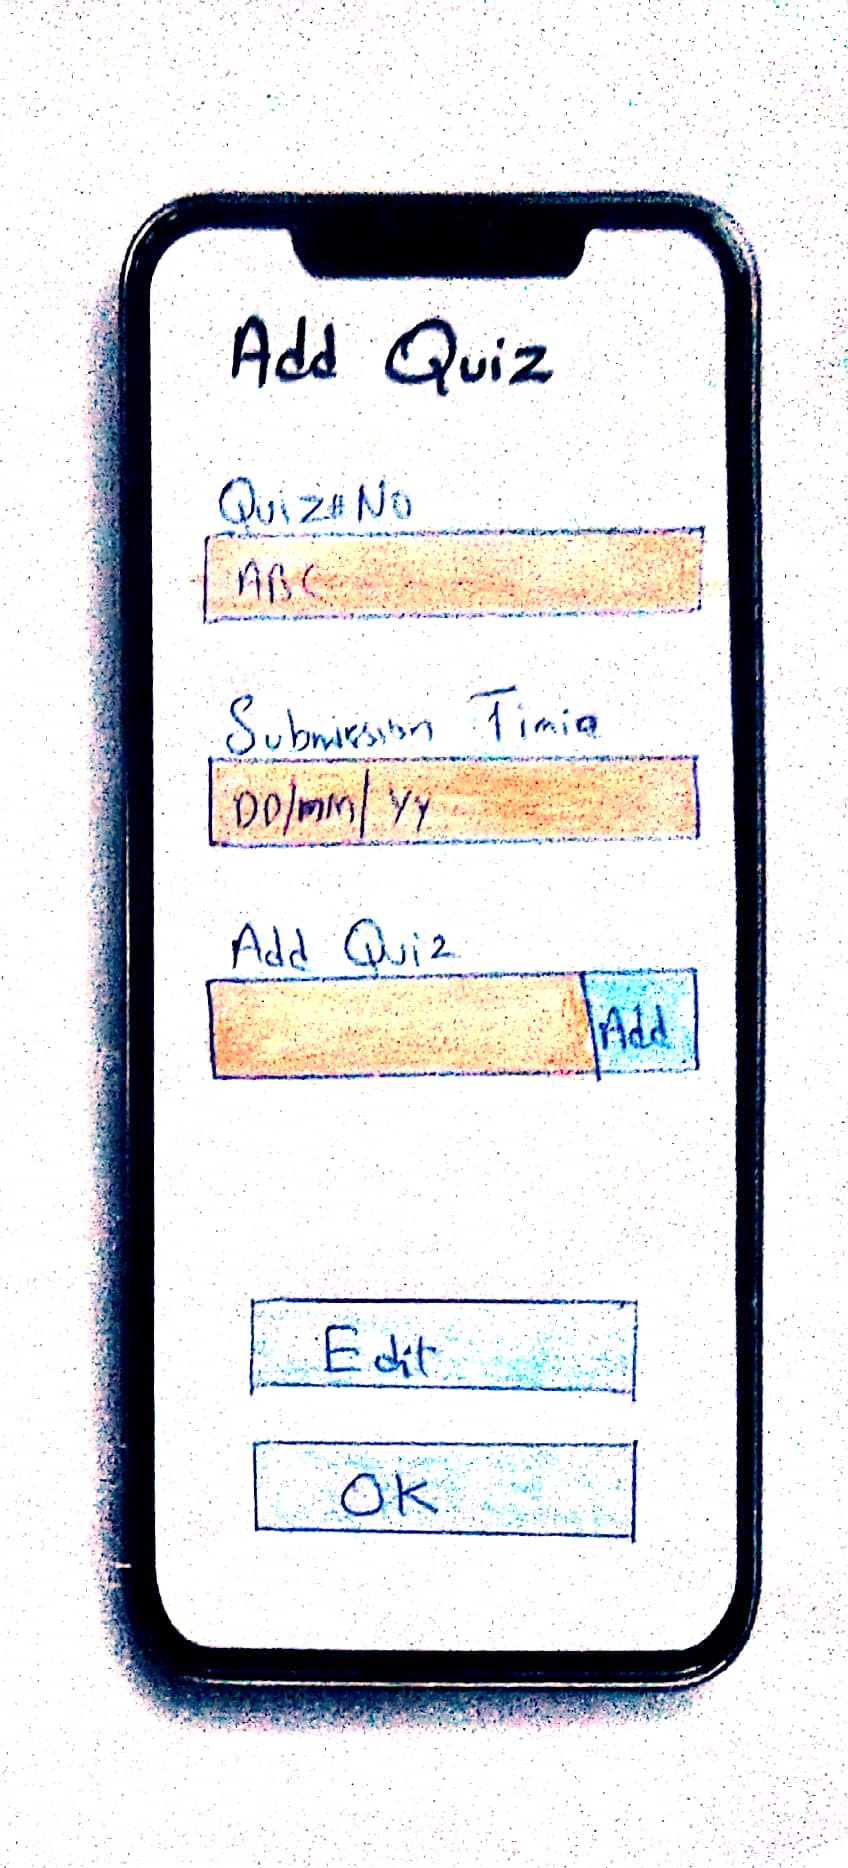 Add Quiz
Quiz#No
ABC
Submission Timie
DD/mm/ yy
Add Quiz
Add
Edit
OK